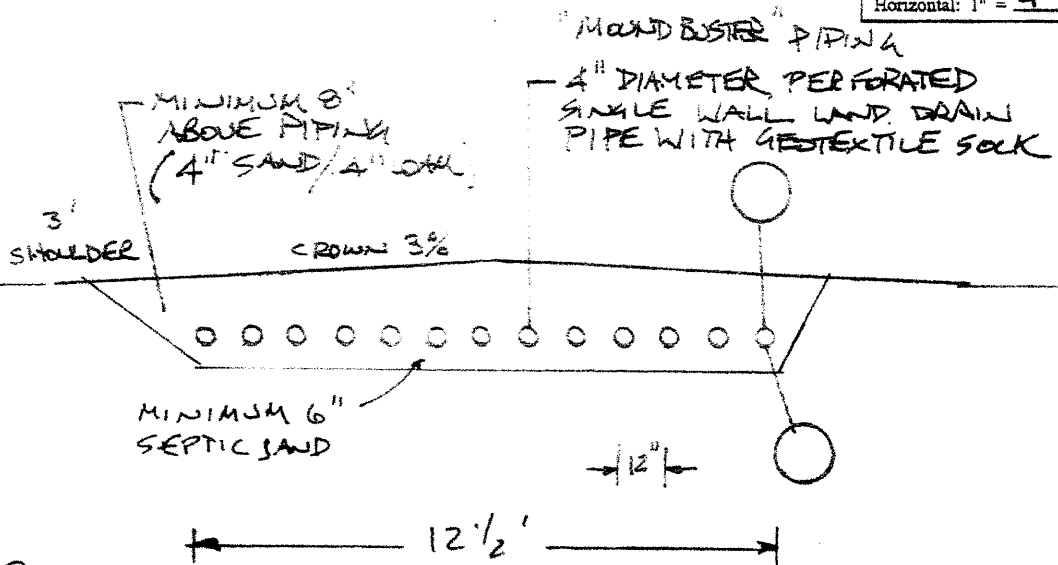 Horizontal: 1" =
"MOUND BUSTER" PIPING
4" DIAMETER PERFORATED
SINGLE WALL LAND DRAIN
PIPE WITH GEOTEXTILE SOCK
MINIMUM 8"
ABOVE PIPING
(4" SAND/4"
3'
SHOULDER
CROWN 3%
MINIMUM 6"
SEPTIC SAND
12"
12 1/2'